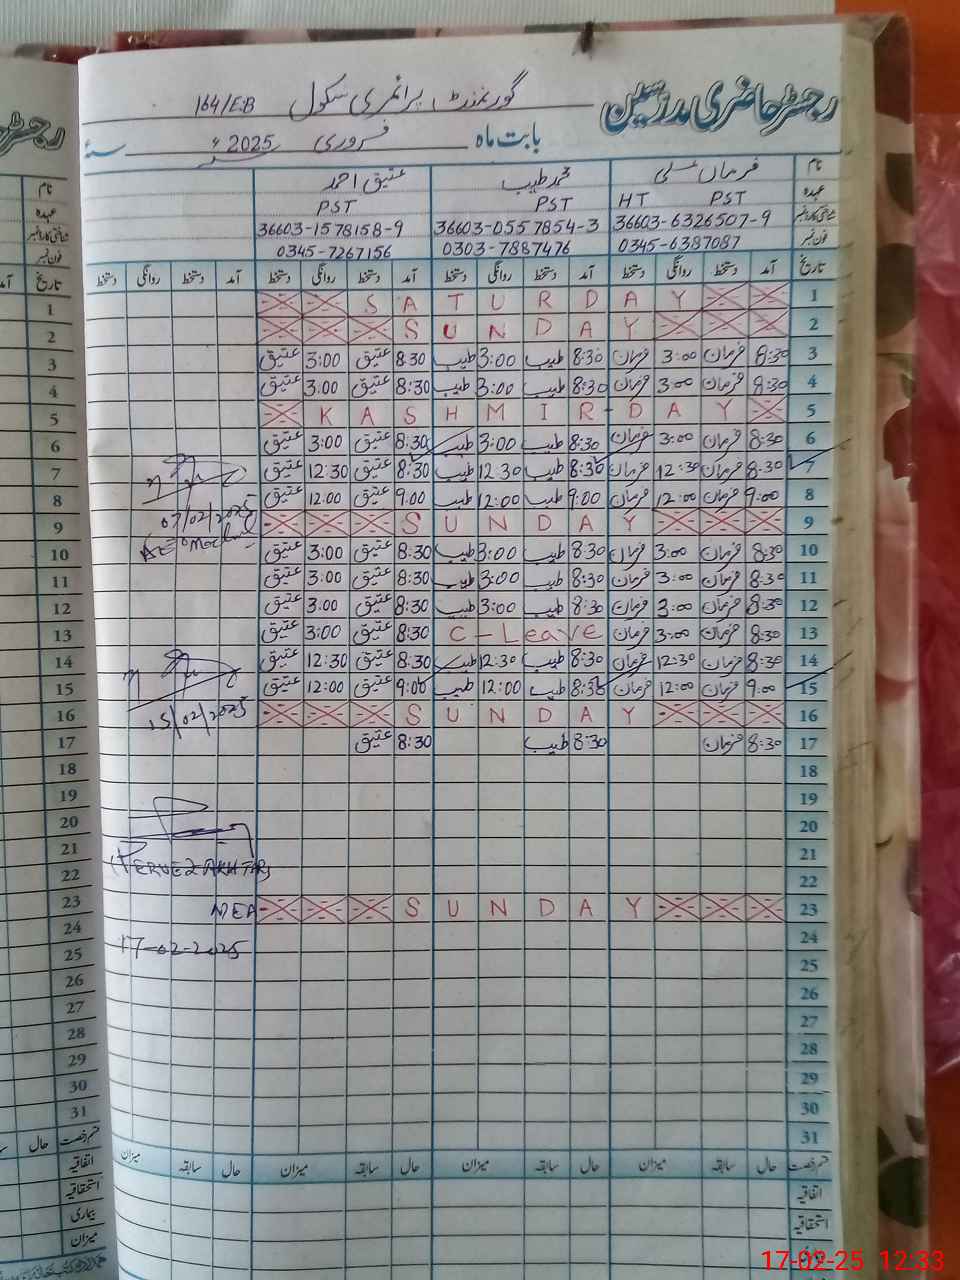 رجسٹر حاضری مدرسین گورنمنٹ پرائمری سکول 164/E.B
بابت ماہ فروری 2025ء سنہ
نام فرمان علی محمد طیب عتیق احمد
عہدہ PST HT PST PST
شناختی کارڈ نمبر 36603-6326507-9 36603-0557854-3 36603-1578158-9
فون نمبر 0345-6387087 0303-7887476 0345-7267156
تاریخ آمد دستخط روانگی دستخط آمد دستخط روانگی دستخط آمد دستخط روانگی دستخط آمد دستخط روانگی دستخط
1 SATURDAY
2 SUNDAY
3 8:30 فرمان 3:00 فرمان 8:30 طیب 3:00 طیب 8:30 عتیق 3:00 عتیق
4 8:30 فرمان 3:00 فرمان 8:30 طیب 3:00 طیب 8:30 عتیق 3:00 عتیق
5 KASHMIR-DAY
6 8:30 فرمان 3:00 فرمان 8:30 طیب 3:00 طیب 8:30 عتیق 3:00 عتیق
7 8:30 فرمان 12:30 فرمان 8:30 طیب 12:30 طیب 8:30 عتیق 12:30 عتیق
8 9:00 فرمان 12:00 فرمان 9:00 طیب 12:00 طیب 9:00 عتیق 12:00 عتیق
07/02/2025
9 SUNDAY
AEO
10 8:30 فرمان 3:00 فرمان 8:30 طیب 3:00 طیب 8:30 عتیق 3:00 عتیق
11 8:30 فرمان 3:00 فرمان 8:30 طیب 3:00 طیب 8:30 عتیق 3:00 عتیق
12 8:30 فرمان 3:00 فرمان 8:30 طیب 3:00 طیب 8:30 عتیق 3:00 عتیق
13 8:30 فرمان 3:00 فرمان C-Leave 8:30 عتیق 3:00 عتیق
14 8:30 فرمان 12:30 فرمان 8:30 طیب 12:30 طیب 8:30 عتیق 12:30 عتیق
15 9:00 فرمان 12:00 فرمان 8:58 طیب 12:00 طیب 9:00 عتیق 12:00 عتیق
16 SUNDAY
15/02/2025
17 8:30 فرمان 8:30 طیب 8:30 عتیق
18
19
20
21
PERVEZ AKHTAR
22
23 SUNDAY
MEA
24
17-02-2025
25
26
27
28
29
30
31
قسم رخصت حال سابقہ میزان حال سابقہ میزان حال سابقہ میزان حال سابقہ میزان
اتفاقیہ
استحقاقیہ
تاریخ
1
2
3
4
5
6
7
8
9
10
11
12
13
14
15
16
17
18
19
20
21
22
23
24
25
26
27
28
29
30
31
قسم رخصت حال
اتفاقیہ
استحقاقیہ
بیماری
میزان
17-02-25 12:33